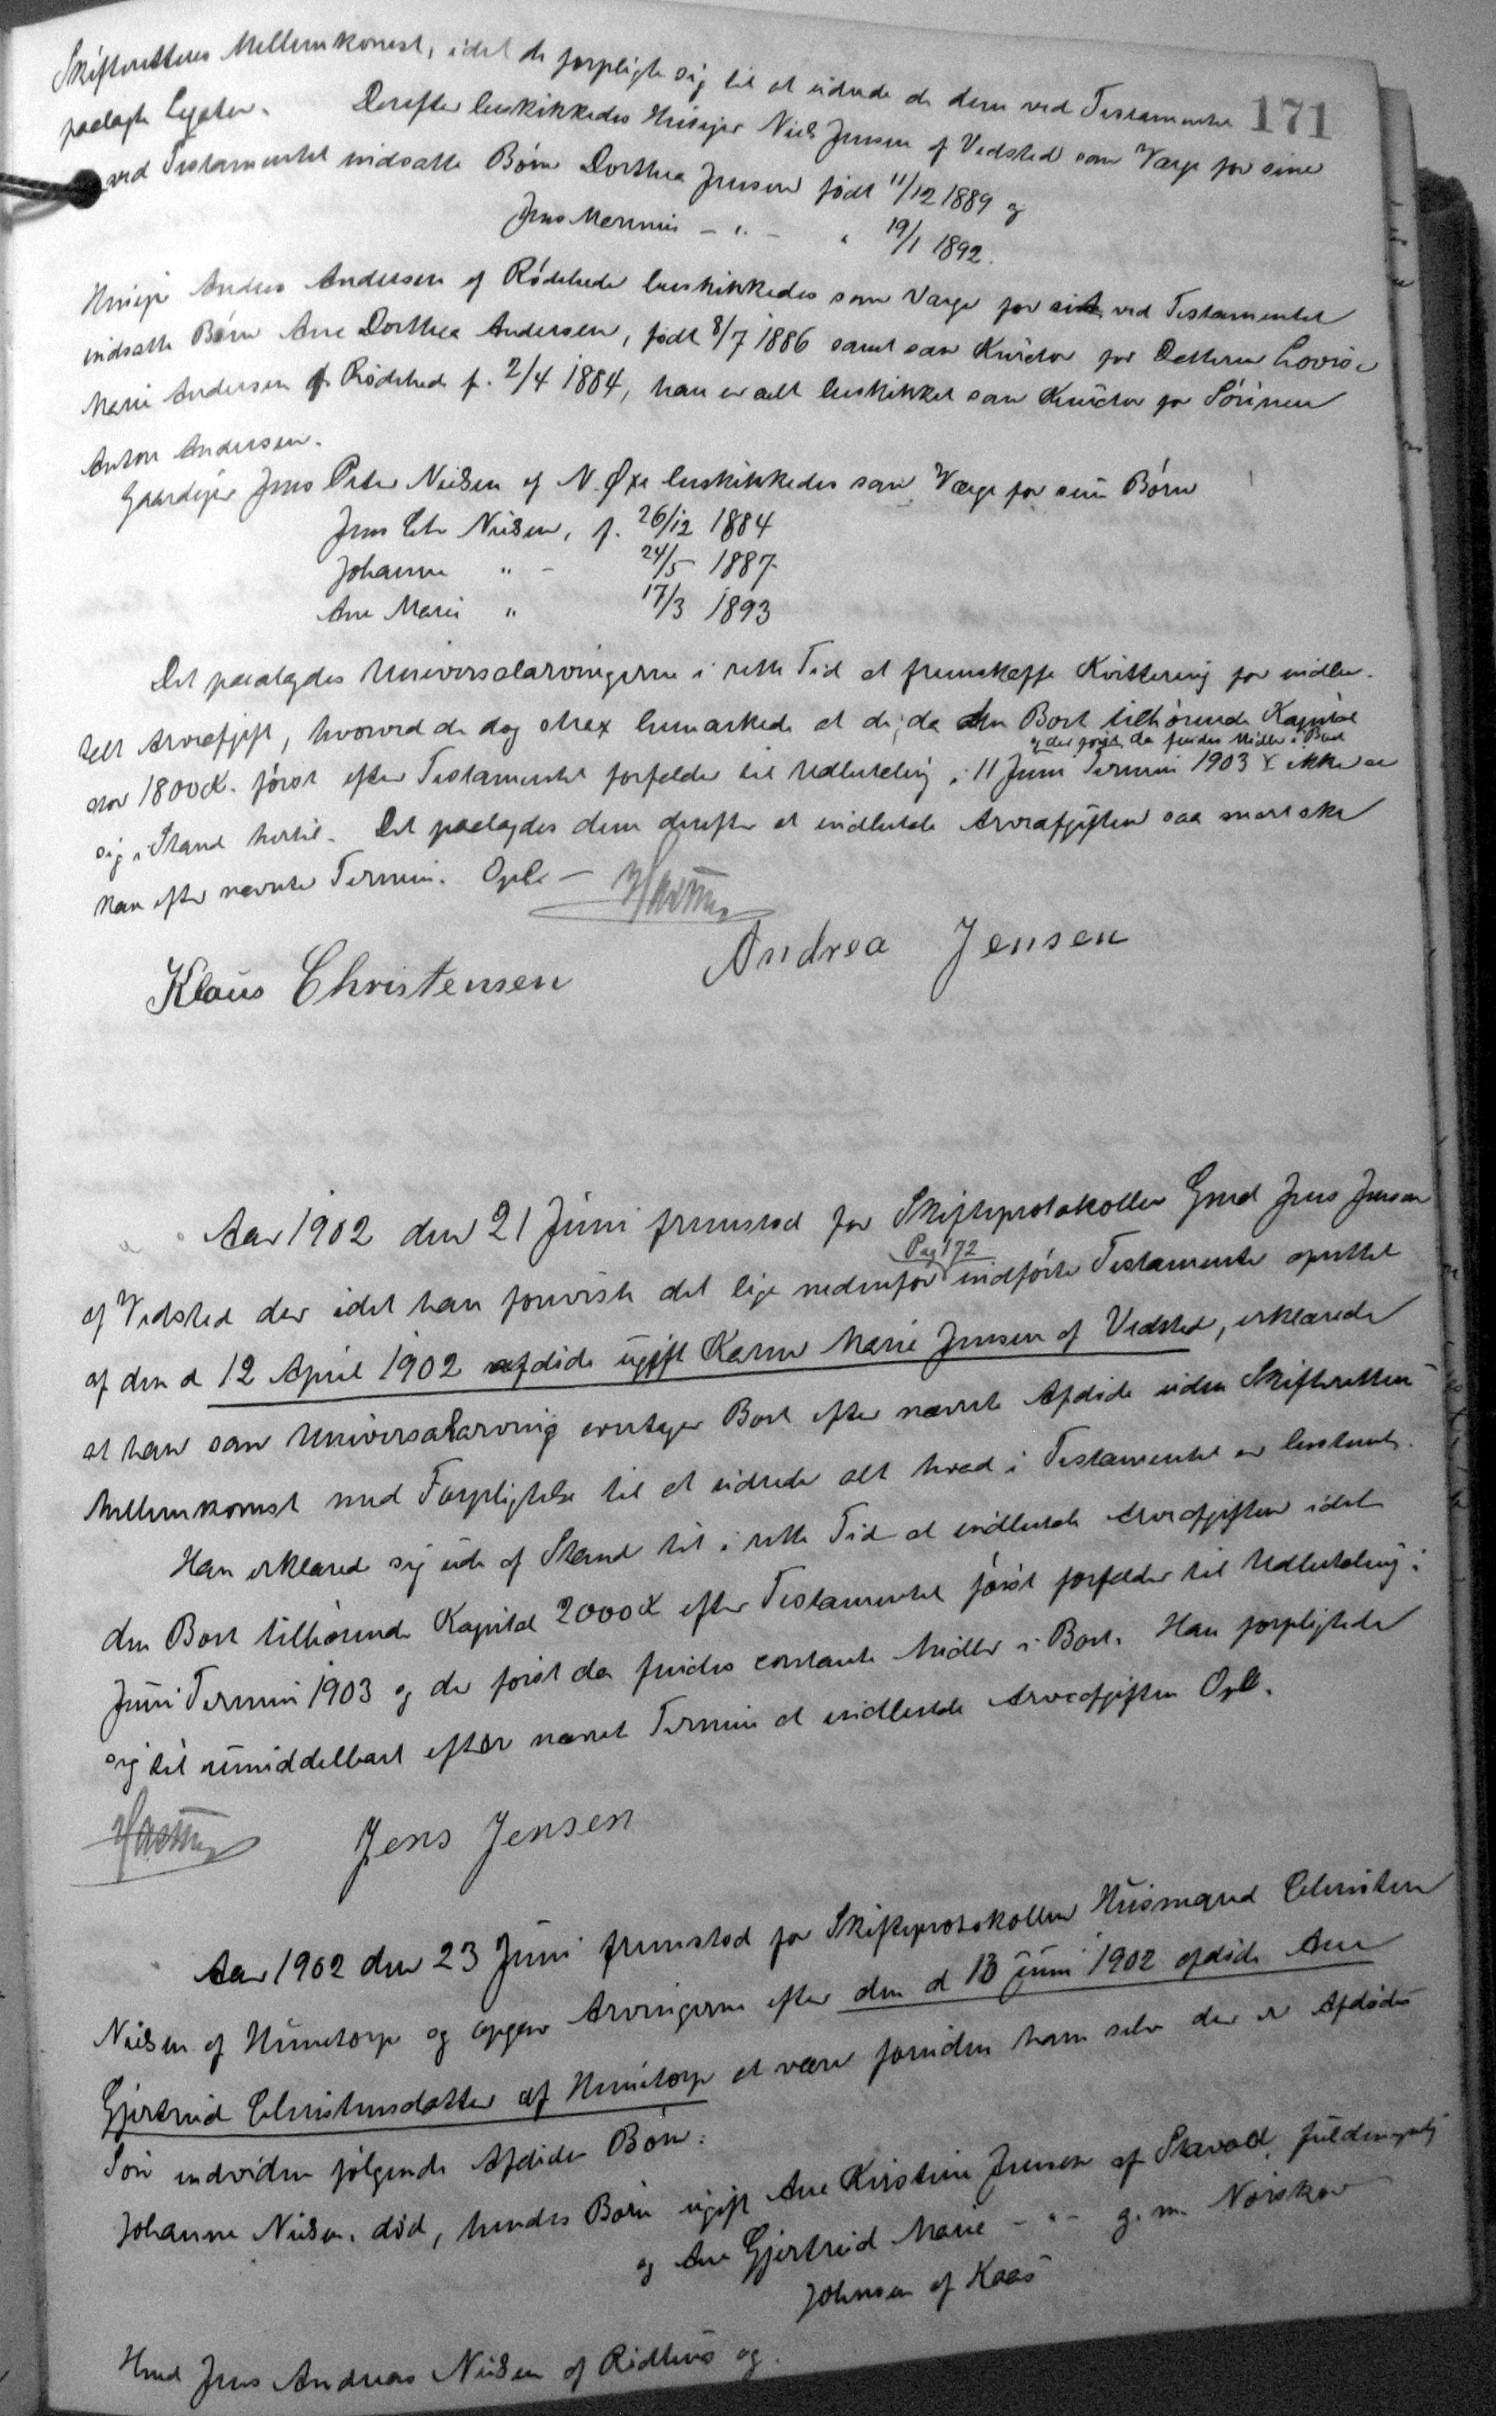 171
Skifterettens Mellemkomst, idet de forpligte sig til at udrede de dem ved Testamentet
paalagte Legater. Derefter beskikkedes Husejer Niels Jensen af Vedsted som Værge for sine
ved Testamentet indsatte Børn Dorthea Jensen født 11/12 1889 og
Jens Marinus - " - " 19/1 1892.
Husejer Anders Andersen af Rødslede beskikkedes som Værge for sit ved Testamentet
indsatte Barn Ane Dorthea Andersen, født 8/7 1886 samt som Kurator for Datteren Lovise
Marie Andersen af Rødslede f. 2/4 1884, han er alt beskikket som Kurator for Sönnen
Anton Andersen.
Gaardejer Jens Peter Nielsen af N. Øxe beskikkedes som Værge for sine Börn
Jens Chr Nielsen, f. 26/12 1884
Johanne " - 24/5 1887
Ane Marie " 17/3 1893
Det paalagdes Universalarvingerne i rette Tid at fremskaffe Kvittering for indbe-
talt Arveafgift, hvorved de dog strax bemærkede at de, da den Boet tilhörende Kapital
og der först da findes Midler i Boet
stor 1800 K. först efter Testamentet forfalder til Udbetaling i 11 Juni Termin 1903 ikke er
sig i Stand hertil. Det paalagdes dem derefter at indbetale Arveafgiften saa snart ske
kan efter nævnte Termin. Opl. -
Klaus Christensen Andrea Jensen
Aar 1902 den 21 Juni fremstod for Skifteprotokollen Gmd Jens Jensen
Pag 172
af Vedsted der idet han foreviste det lige nedenfor indförte Testamente oprettet
af den d 12 April 1902 afdöde ugift Karen Marie Jensen af Vedsted, erklærede
at han som Universalarving overtager Boet efter nævnte Afdöde uden Skifterettens
Mellemkomst med Forpligtelse til at udrede alt hvad i Testamentet er bestemt.
Han erklæred sig ude af Stand til i rette Tid at indbetale Arveafgiften idet
den Boet tilhörende Kapital 2000 K efter Testamentet först forfalder til Udbetaling i
Juni Termin 1903 og der först da findes contante Midler i Boet. Han forpligtede
sig til umiddelbart efter nævnte Termin at indbetale Arveafgiften Opl.
Jens Jensen
Aar 1902 den 23 Juni fremstod for Skifteprotokollen Husmand Christen
Nielsen af Hunetorp og opgav Arvingerne efter den d 13 Juni 1902 afdöde Ane
Gjertrud Christensdatter af Hunetorp at være foruden ham selv der er Afdödes
Sön endvidere fölgende Afdödes Börn:
Johanne Nielsen, död, hendes Börn ugift Ane Kirstine Jensen af Stavad, fuldmyndig
og Ane Gjertrud Marie - " - g. m. Nörskov
Johnsen af Kaas
Hmd Jens Andreas Nielsen af Rödhus og.